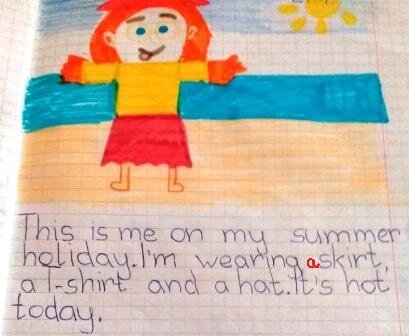 This is me on my summer
holiday. I'm wearing a skirt,
a T-shirt and a hat. It's hot
today.